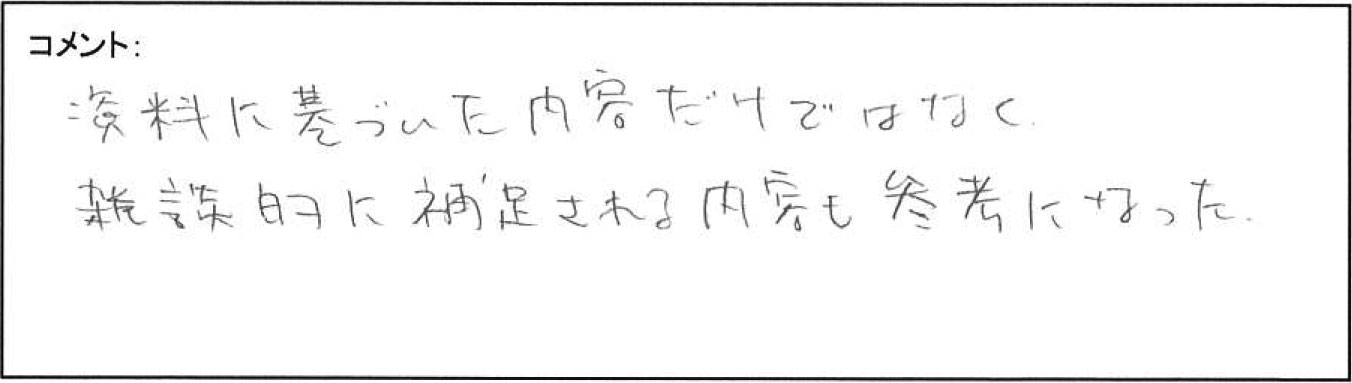 コメント:
資料に基づいた内容だけではなく、
雑談的に補足される内容も参考になった.